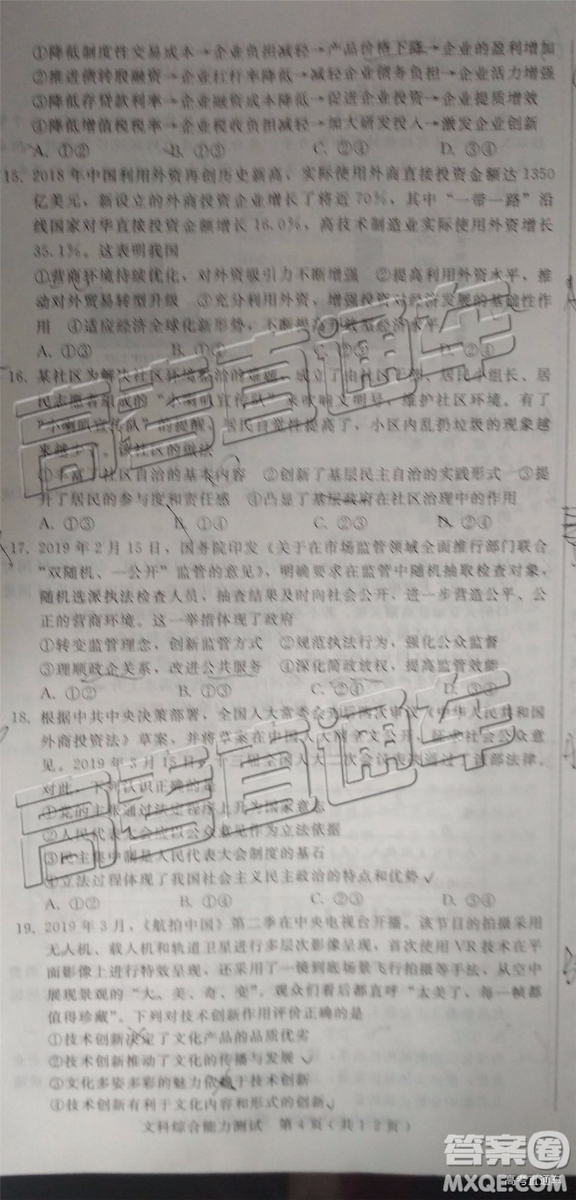 ①降低制度性交易成本→企业负担减轻→产品价格下降→企业的盈利增加
②推进债转股融资→企业杠杆率降低→减轻企业债务负担→企业活力增强
③降低存贷款利率→企业融资成本降低→促进企业投资→企业提质增效
④降低增值税税率→企业税收负担减轻→加大研发投入→激励企业创新
A. ①② B. ①③ C. ②④ D. ③④
15. 2018 年中国利用外资再创历史新高，实际使用外商直接投资金额达 1350
亿美元，新设立的外商投资企业增长了将近 70%，其中“一带一路”沿
线国家对华直接投资金额增长 16.0%，高技术制造业实际使用外资增长
35.1%。这表明我国
①营商环境持续优化，对外资吸引力不断增强 ②提高利用外资水平，推
动对外贸易转型升级 ③充分利用外资，增强投资对经济发展的基础性作
用 ④适应经济全球化新形势，不断提高开放型经济水平
A. ①③ B. ①④ C. ②③ D. ②④
16. 某社区为解决社区环境治的难题，成立了由社区干部、居民小组长、居
民志愿者组成的“小喇叭宣传队”来唤响文明，维护社区环境。有了
“小喇叭宣传队”的提醒，居民自觉性提高了，小区内乱扔垃圾的现象越
来越少了。该社区的做法
①丰富了社区自治的基本内容 ②创新了基层民主自治的实践形式 ③提
升了居民的参与度和责任感 ④凸显了基层政府在社区治理中的作用
A. ①③ B. ①④ C. ②③ D. ②④
17. 2019 年 2 月 15 日，国务院印发《关于在市场监管领域全面推行部门联合
“双随机、一公开”监管的意见》，明确要求在监管中随机抽取检查对象，
随机选派执法检查人员，抽查结果及时向社会公开，进一步营造公平、公
正的营商环境。这一举措体现了政府
①转变监管理念，创新监管方式 ②规范执法行为，强化公众监督
③理顺政企关系，改进公共服务 ④深化简政放权，提高监管效能
A. ①② B. ①③ C. ②④ D. ③④
18. 根据中共中央决策部署，全国人大常委会两次审议《中华人民共和国
外商投资法》草案，并将草案在中国人大网公开，征求社会公众意
见。2019 年 3 月 15 日，十三届全国人大二次会议表决通过了这部法律。
对此，下列认识正确的是
①党的主张通过法定程序上升为国家意志
②人民代表大会应以公众意见作为立法依据
③民主集中制是人民代表大会制度的基石
④立法过程体现了我国社会主义民主政治的特点和优势
A. ①③ B. ①④ C. ②③ D. ②④
19. 2019 年 3 月，《航拍中国》第二季在中央电视台开播。该节目的拍摄采用
无人机、载人机和轨道卫星进行多层次影像呈现，首次使用 VR 技术在平
面影像上进行特效呈现，还采用了一镜到底场景飞行拍摄等手法，从空中
展现景观的“大、美、奇、变”。观众们看后都直呼“太美了，每一帧都
值得珍藏”。下列对技术创新作用评价正确的是
①技术创新决定了文化产品的品质优劣
②技术创新推动了文化的传播与发展
③文化多姿多彩的魅力依赖于技术创新
④技术创新有利于文化内容和形式的创新
文科综合能力测试 第 4 页（共 12 页）
高考直通车
高考直通车
答案圈
高考直通车